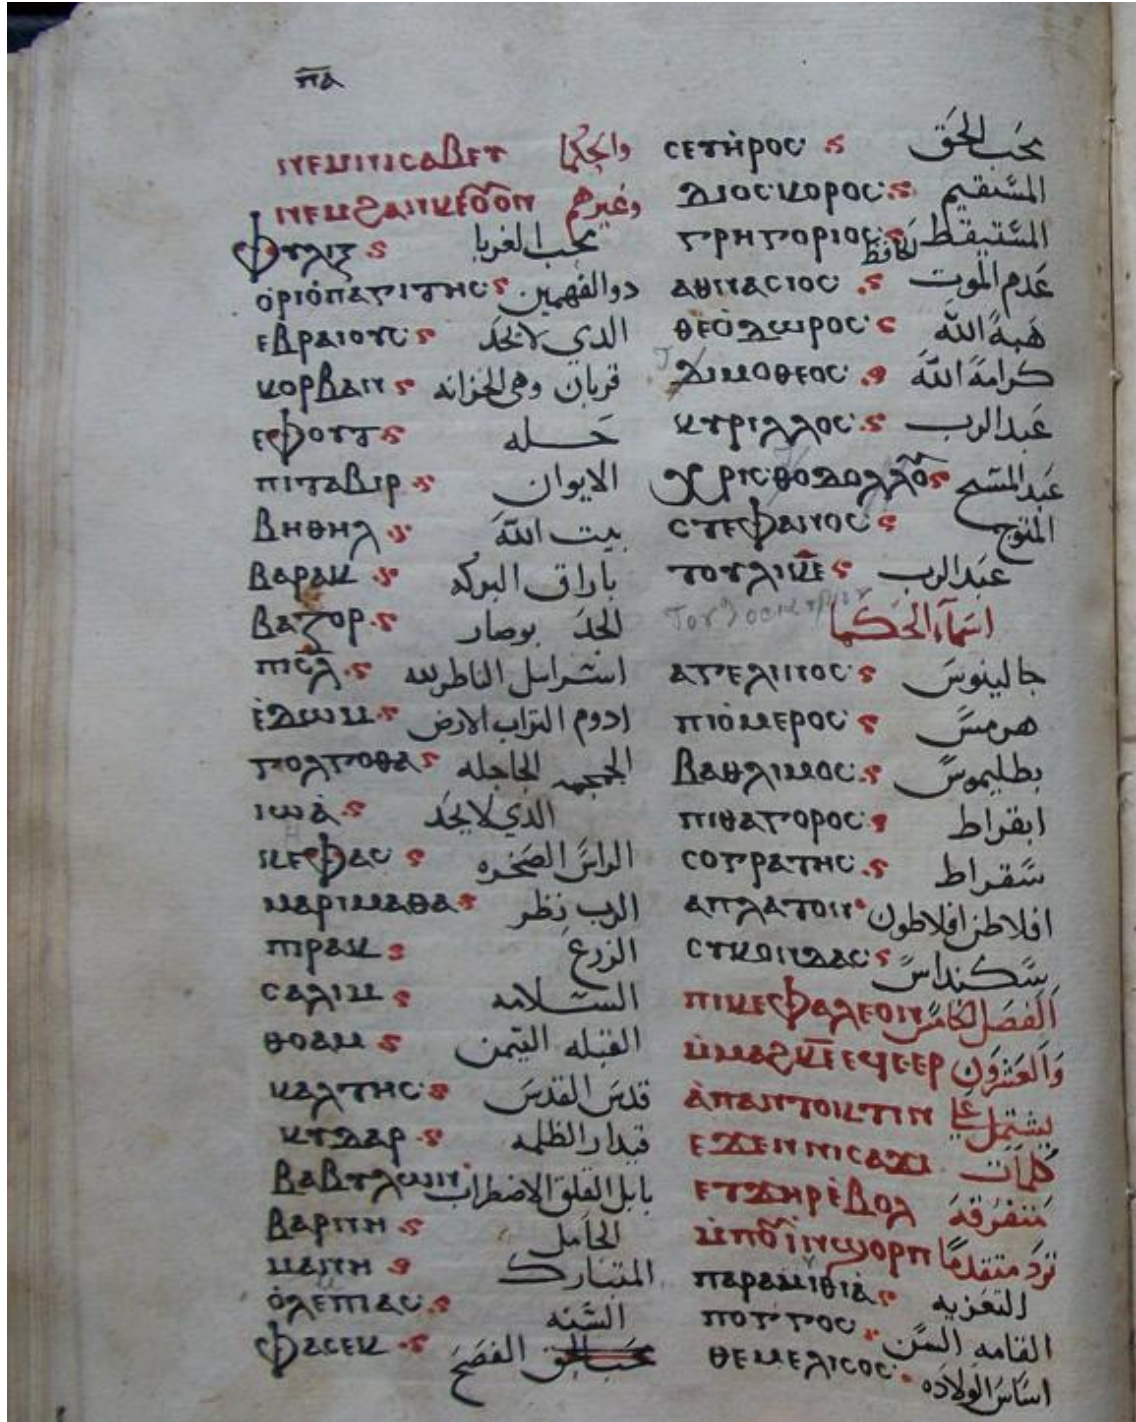 ⲡⲁ
ⲛⲉⲙⲛⲓⲥⲁⲃⲉⲩ والحكما
ⲛⲉⲙϩⲁⲛⲕⲉⲟⲩⲟⲛ وغيرهم
ⲫⲩⲗⲓⲝ محب الغربا
ⲟⲣⲓⲟⲡⲁⲅⲓⲧⲏⲥ دو الفهمين
ⲉⲃⲣⲁⲓⲟⲩⲥ الدي لا يحد
ⲕⲟⲣⲃⲁⲛ قربان وهى الخزانه
ⲉⲫⲟⲩⲧ حله
ⲡⲓⲧⲁⲃⲓⲣ الايوان
ⲃⲏⲑⲏⲗ بيت الله
ⲃⲁⲣⲁⲕ باراق البركه
ⲃⲁⲍⲟⲣ الحد بوصار
ⲡⲓⲥⲗ اسراييل الناظر لله
ⲉⲇⲱⲙ ادوم التراب الارض
ⲅⲟⲗⲅⲟⲑⲁ الجمجمه الجاجله
ⲓⲱⲁ الذي لا يحد
ⲕⲉⲫⲁⲥ الراس الصخره
ⲙⲁⲣⲓⲙⲁⲑⲁ الرب نظر
ⲡⲣⲁⲕ الزرع
ⲥⲁⲗⲓⲙ السلامه
ⲑⲟⲁⲙ القبله التيمن
ⲕⲁⲗⲧⲏⲥ قدس القدس
ⲕⲩⲇⲁⲣ قيدار الظلمه
ⲃⲁⲃⲩⲗⲱⲛ بابل القلق الاضطراب
ⲃⲁⲣⲡⲏ الحامل
ⲙⲁⲡⲏ المتبارك
ⲟⲗⲉⲡⲓⲁⲥ السنه
ⲫⲁⲥⲉⲕ الفصح
ⲥⲉⲩⲏⲣⲟⲥ محب الحق
ⲇⲓⲟⲥⲕⲟⲣⲟⲥ المستقيم
ⲅⲣⲏⲅⲟⲣⲓⲟⲥ المستيقظ الحافظ
ⲁⲑⲛⲁⲥⲓⲟⲥ عدم الموت
ⲑⲉⲟⲇⲱⲣⲟⲥ هبة الله
ⲇⲓⲙⲟⲑⲉⲟⲥ كرامة الله
ⲕⲩⲣⲓⲗⲗⲟⲥ عبد الرب
ⲭⲣⲓⲥⲑⲟⲇⲟⲗⲗⲟ عبد المسيح
ⲥⲧⲉⲫⲁⲛⲟⲥ المتوج
ⲧⲟⲩⲗⲓⲕⲉ عبد الرب
اسماء الحكما
ⲁⲅⲉⲗⲓⲛⲟⲥ جالينوس
ⲡⲓⲟⲙⲉⲣⲟⲥ هرمس
ⲃⲁⲑⲗⲓⲙⲟⲥ بطليموس
ⲡⲓⲑⲁⲅⲟⲣⲟⲥ ابقراط
ⲥⲟⲅⲣⲁⲧⲏⲥ سقراط
ⲁⲡⲗⲁⲧⲟⲛ افلاطن افلاطون
ⲥⲩⲕⲟⲛⲇⲁⲥ سكنداس
ⲡⲓⲕⲉⲫⲁⲗⲉⲟⲛ الفصل الخامس
ⲙⲙⲁϩⲕⲉ ⲉϥⲉⲣ والعشرون
ⲁⲡⲁⲛⲧⲟⲕⲧⲓⲛ يشتمل على
ⲉϫⲉⲛⲛⲓⲥⲁϫⲓ كلمات
ⲉⲧϫⲏⲣⲉⲃⲟⲗ متفرقة
ⲙⲡⲟⲩⲓ ⲛϣⲟⲣⲡ ترد متقدما
ⲡⲁⲣⲁⲙⲓⲑⲓⲁ التعزيه
ⲡⲟⲅⲅⲟⲥ القامه السن
ⲑⲉⲙⲉⲗⲓⲥⲟⲥ اساس الولاده